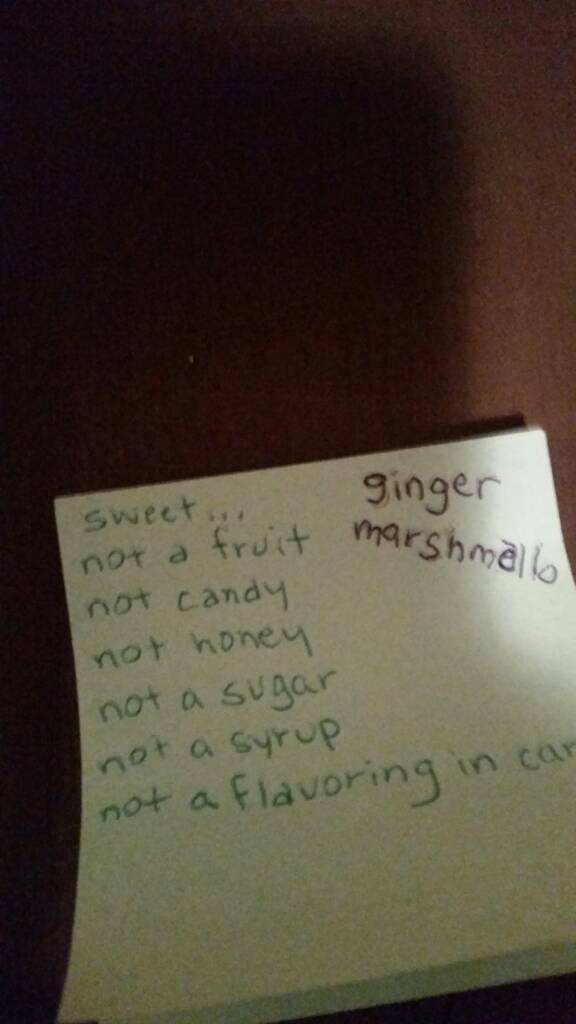 sweet...
not a fruit
not candy
not honey
not a sugar
not a syrup
not a flavoring in
ginger
marshmallo